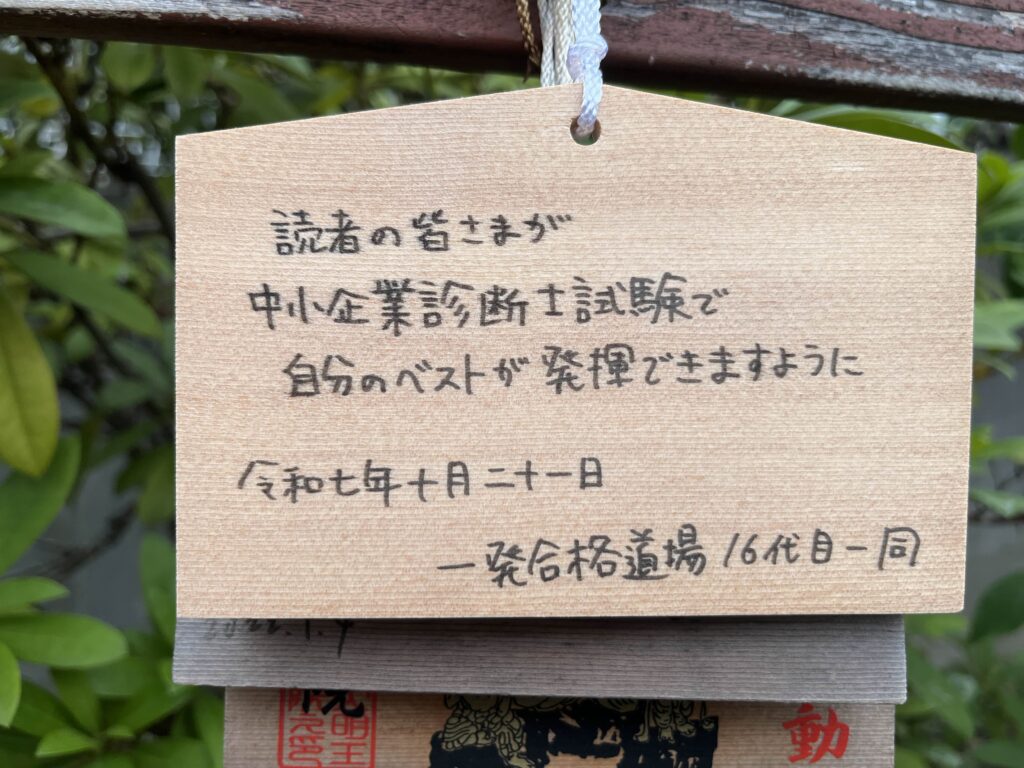 読者の皆さまが
中小企業診断士試験で
自分のベストが発揮できますように
令和七年十月二十一日
一発合格道場 16代目一同
動